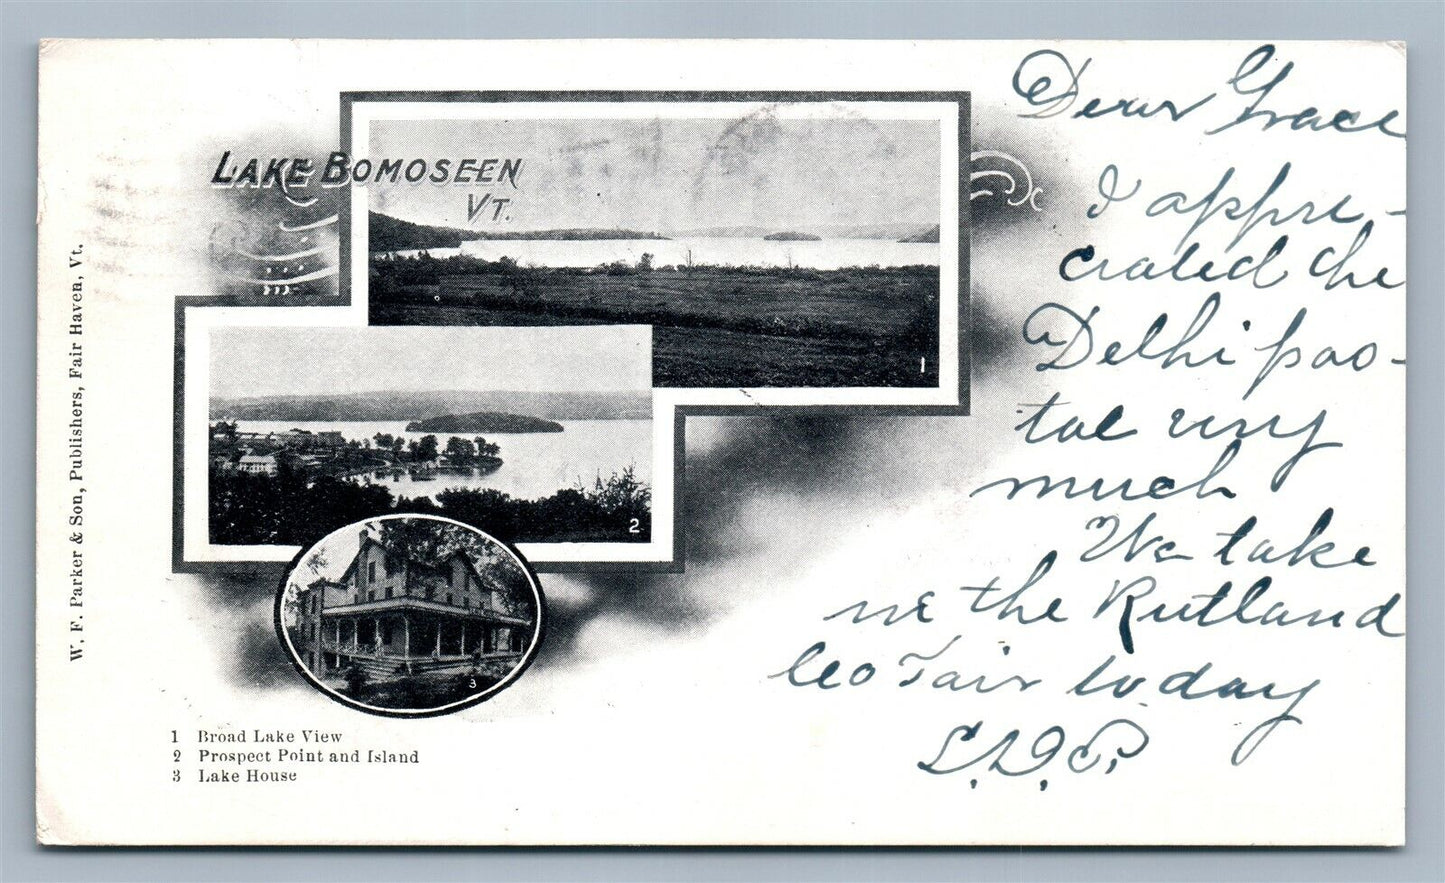 LAKE BOMOSEEN
VT.
W. F. Parker & Son, Publishers, Fair Haven, Vt.
1
2
3
1 Broad Lake View
2 Prospect Point and Island
3 Lake House
Dear Grace
I appre-
ciated the
Delhi pos-
tal very
much
We take
in the Rutland
Co Fair today